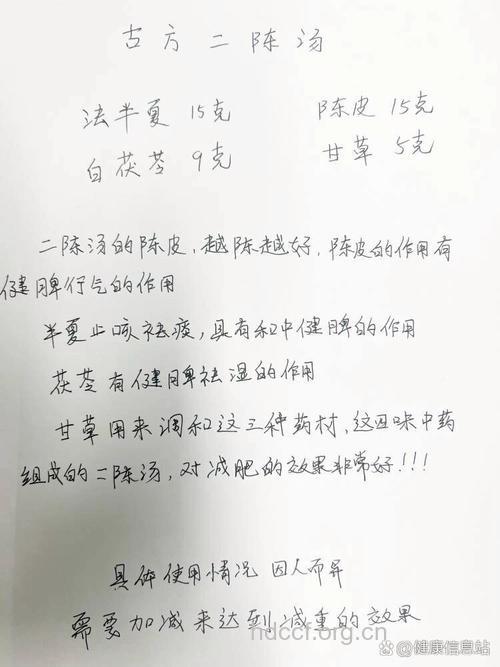 古方二陈汤
法半夏 15克 陈皮 15克
白茯苓 9克 甘草 5克
二陈汤的陈皮,越陈越好,陈皮的作用有
健脾行气的作用
半夏止咳祛痰,具有和中健脾的作用
茯苓有健脾祛湿的作用
甘草用来调和这三种药材,这四味中药
组成的二陈汤,对减肥的效果非常好!!!
具体使用情况 因人而异
需要加减来达到减重的效果
hdccf.org.cn
健康信息站